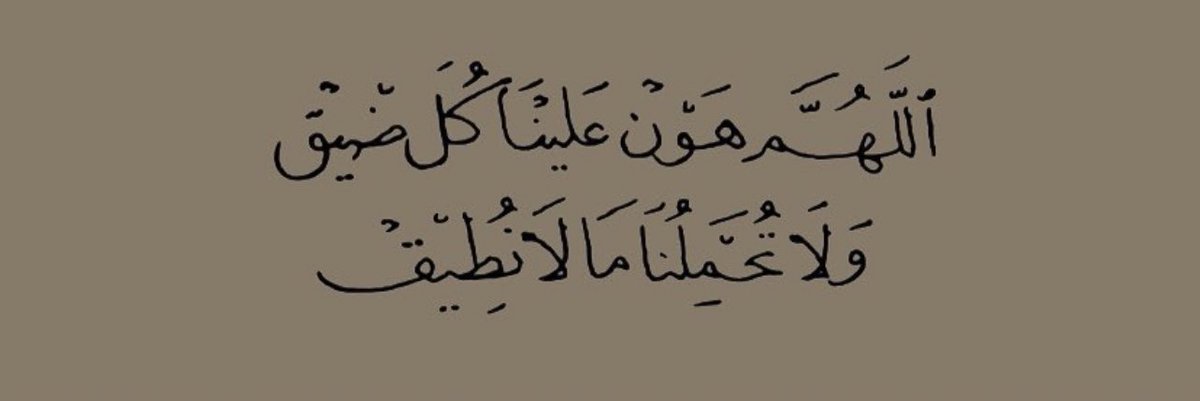 ٱللَّهُمَّ هَوِّنْ عَلَيْنَا كُلَ ضْيِقْ
وَلَا تُحَمِّلُنَا مَا لَا نُطِيّقْ